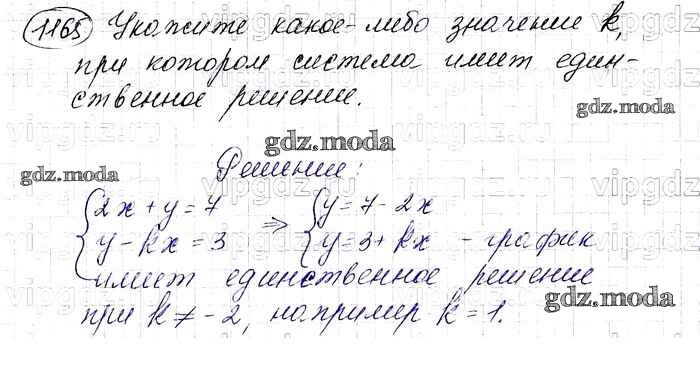 1165 Укажите какое-либо значение k,
при котором система имеет един-
ственное решение.
gdz.moda
gdz.moda
Решение:
gdz.moda
{2x + y = 7 => {y = 7 - 2x
{y - kx = 3 {y = 3 + kx - график
имеет единственное решение
gdz.moda
при k ≠ -2, например k = 1.